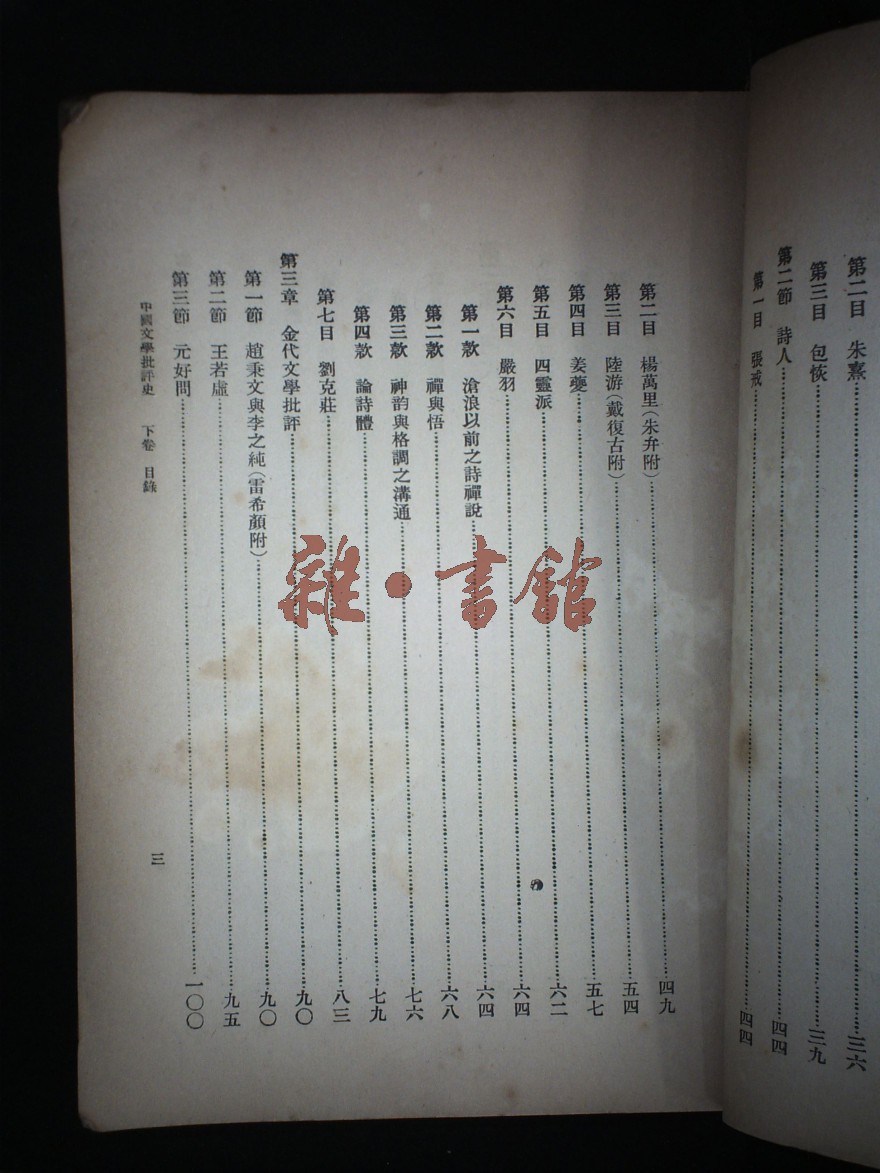 第二目　朱熹……三六
第三目　包恢……三九
第二節　詩人……四四
第一目　張戒……四四
第二目　楊萬里（朱弁附）……四九
第三目　陸游（戴復古附）……五四
第四目　姜夔……五七
第五目　四靈派……六二
第六目　嚴羽……六四
第一款　滄浪以前之詩禪說……六四
第二款　禪與悟……六八
第三款　神韵與格調之溝通……七六
第四款　論詩體……七九
第七目　劉克莊……八三
第三章　金代文學批評……九〇
第一節　趙秉文與李之純（雷希顏附）……九〇
第二節　王若虛……九五
第三節　元好問……一〇〇
中國文學批評史　下卷　目錄
三
雜·書館